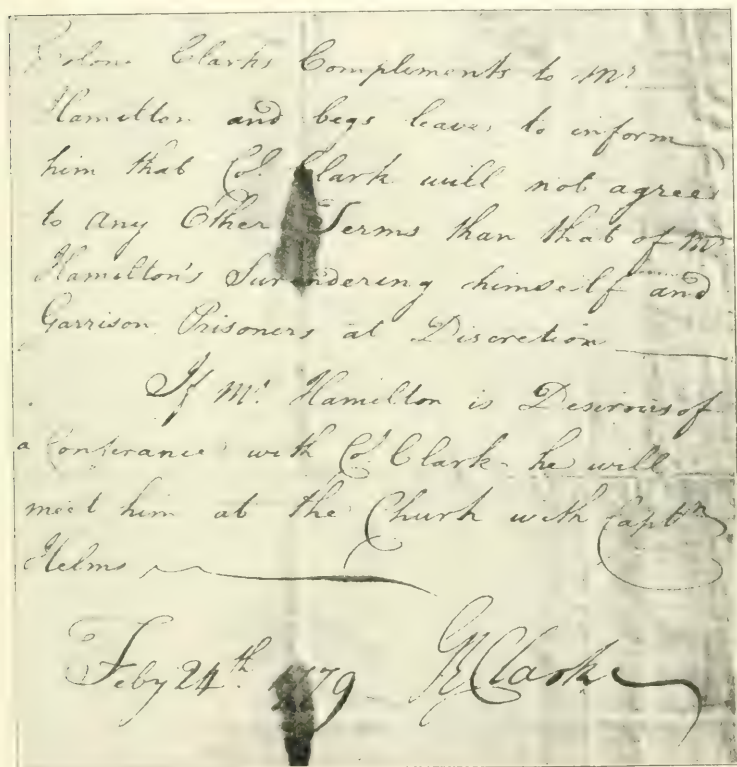 Colonl Clarks Compliments to Mr
Hamilton and begs leave to inform
him that Col. Clark will not agree
to any Other Terms than that of Mr
Hamilton's Surendering himself and
Garrison Prisoners at Discretion
If Mr. Hamilton is Desirous of
a Conferance with Col. Clark he will
meet him at the Church with Captn
Helms
Feby 24th. 1779 GRClark